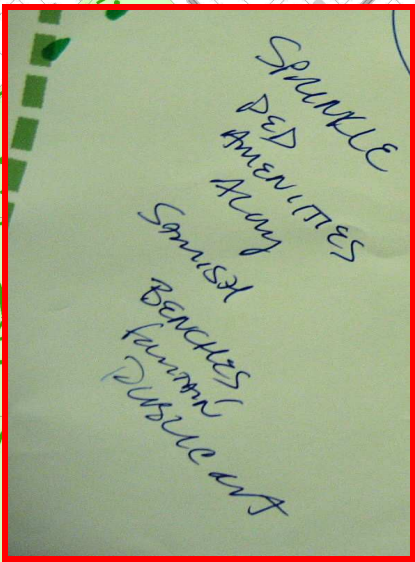 SPRINKLE
PED
AMENITIES
Along
SAMISH
BENCHES,
fountain
PUBLIC art